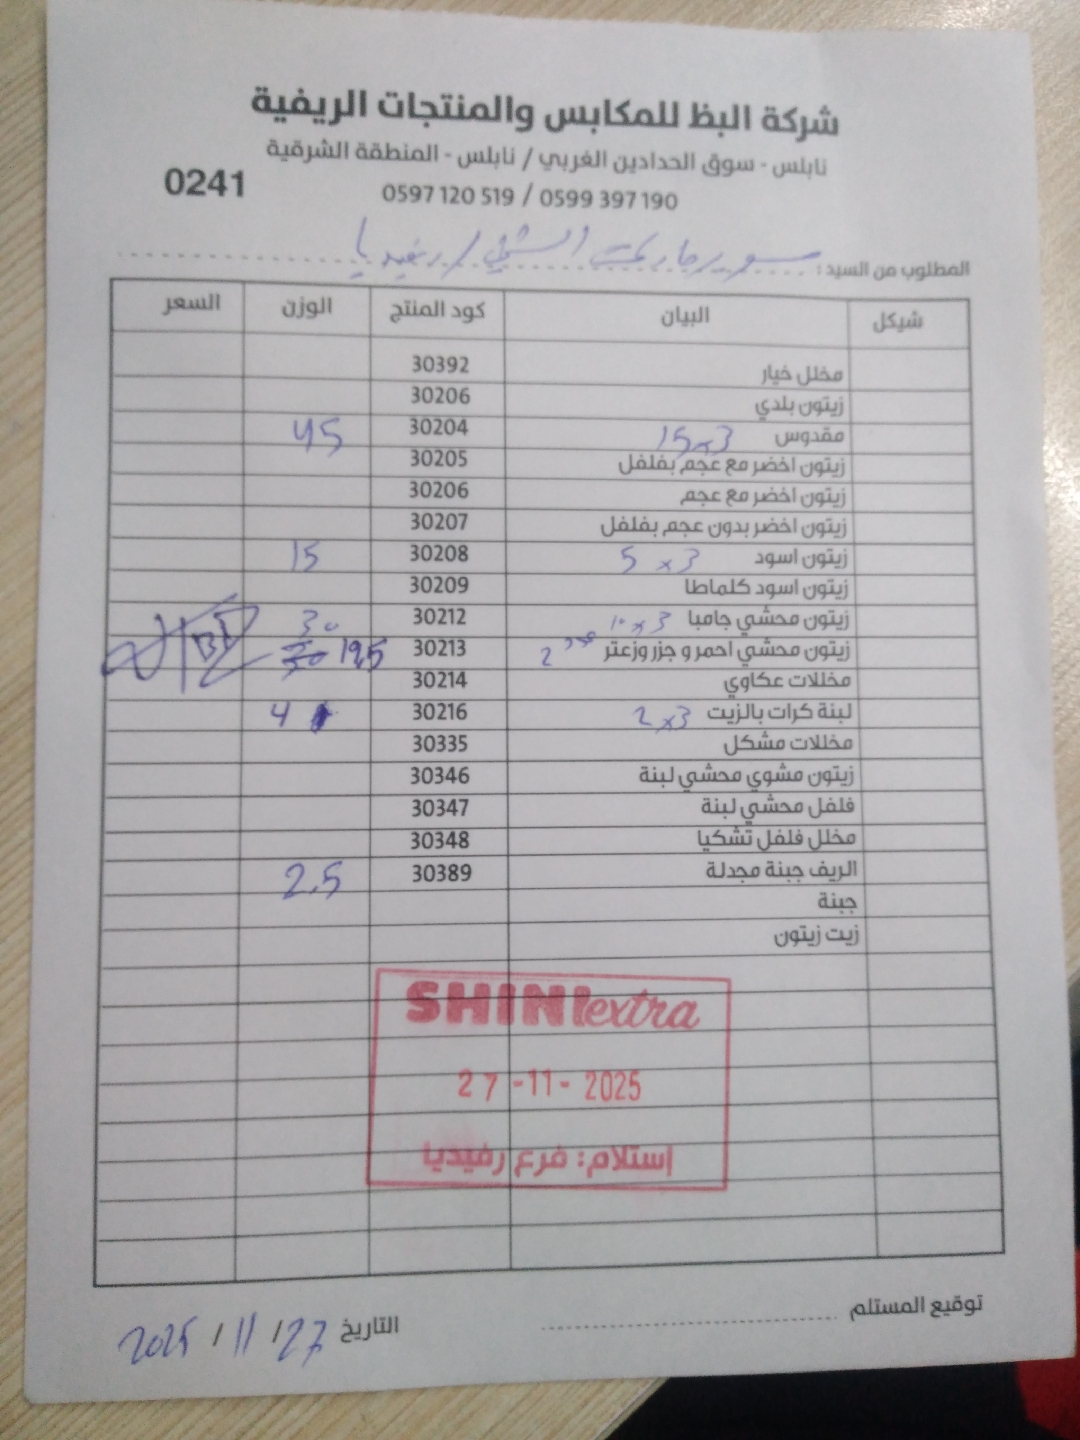 شركة البظ للمكابس والمنتجات الريفية
نابلس - سوق الحدادين الغربي / نابلس - المنطقة الشرقية
0597 120 519 / 0599 397 190
0241
المطلوب من السيد: سوبرماركت الشني / رفيديا
شيكل البيان كود المنتج الوزن السعر
مخلل خيار 30392
زيتون بلدي 30206
مقدوس 15x3 30204 45
زيتون اخضر مع عجم بفلفل 30205
زيتون اخضر مع عجم 30206
زيتون اخضر بدون عجم بفلفل 30207
زيتون اسود 5x3 30208 15
زيتون اسود كلماطا 30209
زيتون محشي جامبا 10x3 30212 30
زيتون محشي احمر و جزر وزعتر 2 30213 19,5
مخللات عكاوي 30214
لبنة كرات بالزيت 2x3 30216 4
مخللات مشكل 30335
زيتون مشوي محشي لبنة 30346
فلفل محشي لبنة 30347
مخلل فلفل تشكيا 30348
الريف جبنة مجدلة 30389 2.5
جبنة
زيت زيتون
SHINI extra
27-11-2025
إستلام: فرع رفيديا
توقيع المستلم
التاريخ 27 / 11 / 2025